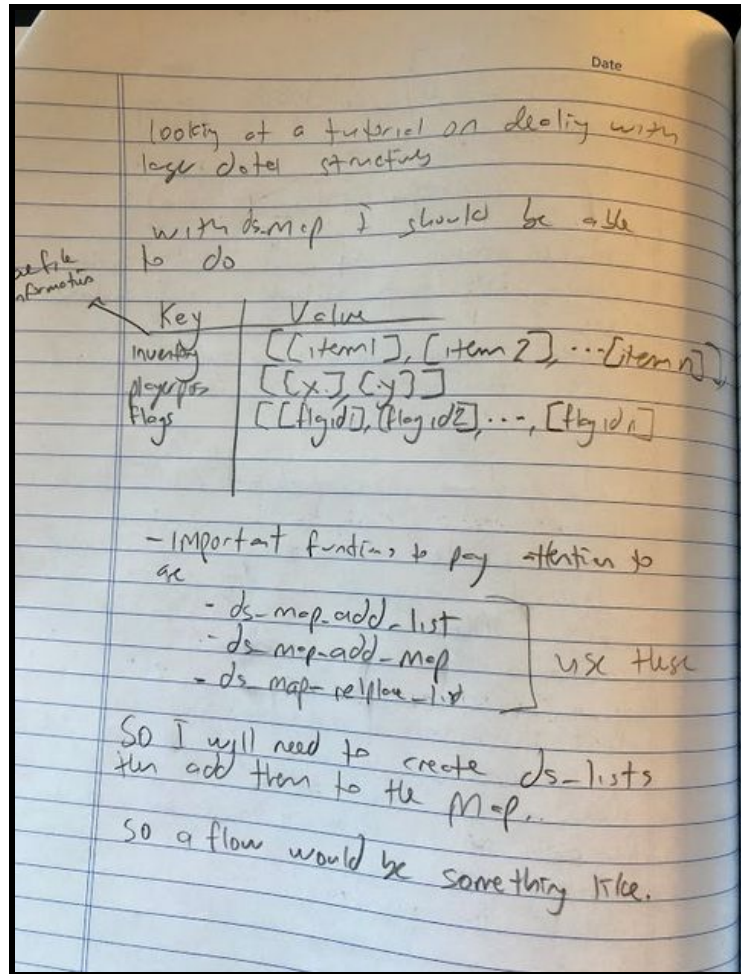 Date
looking at a tutorial on dealing with
large data structures
with ds_map I should be able
to do
file
Key Value
inventory [[item1], [item 2], ...[item n]]
playerpos [[x], [y]]
flags [[flgid1], [flag id2], ..., [flg id n]
- Important functions to pay attention to
are
- ds_map_add_list
- ds_map_add_map
- ds_map_replace_list
use these
So I will need to create ds_lists
then add them to the Map..
so a flow would be something like.